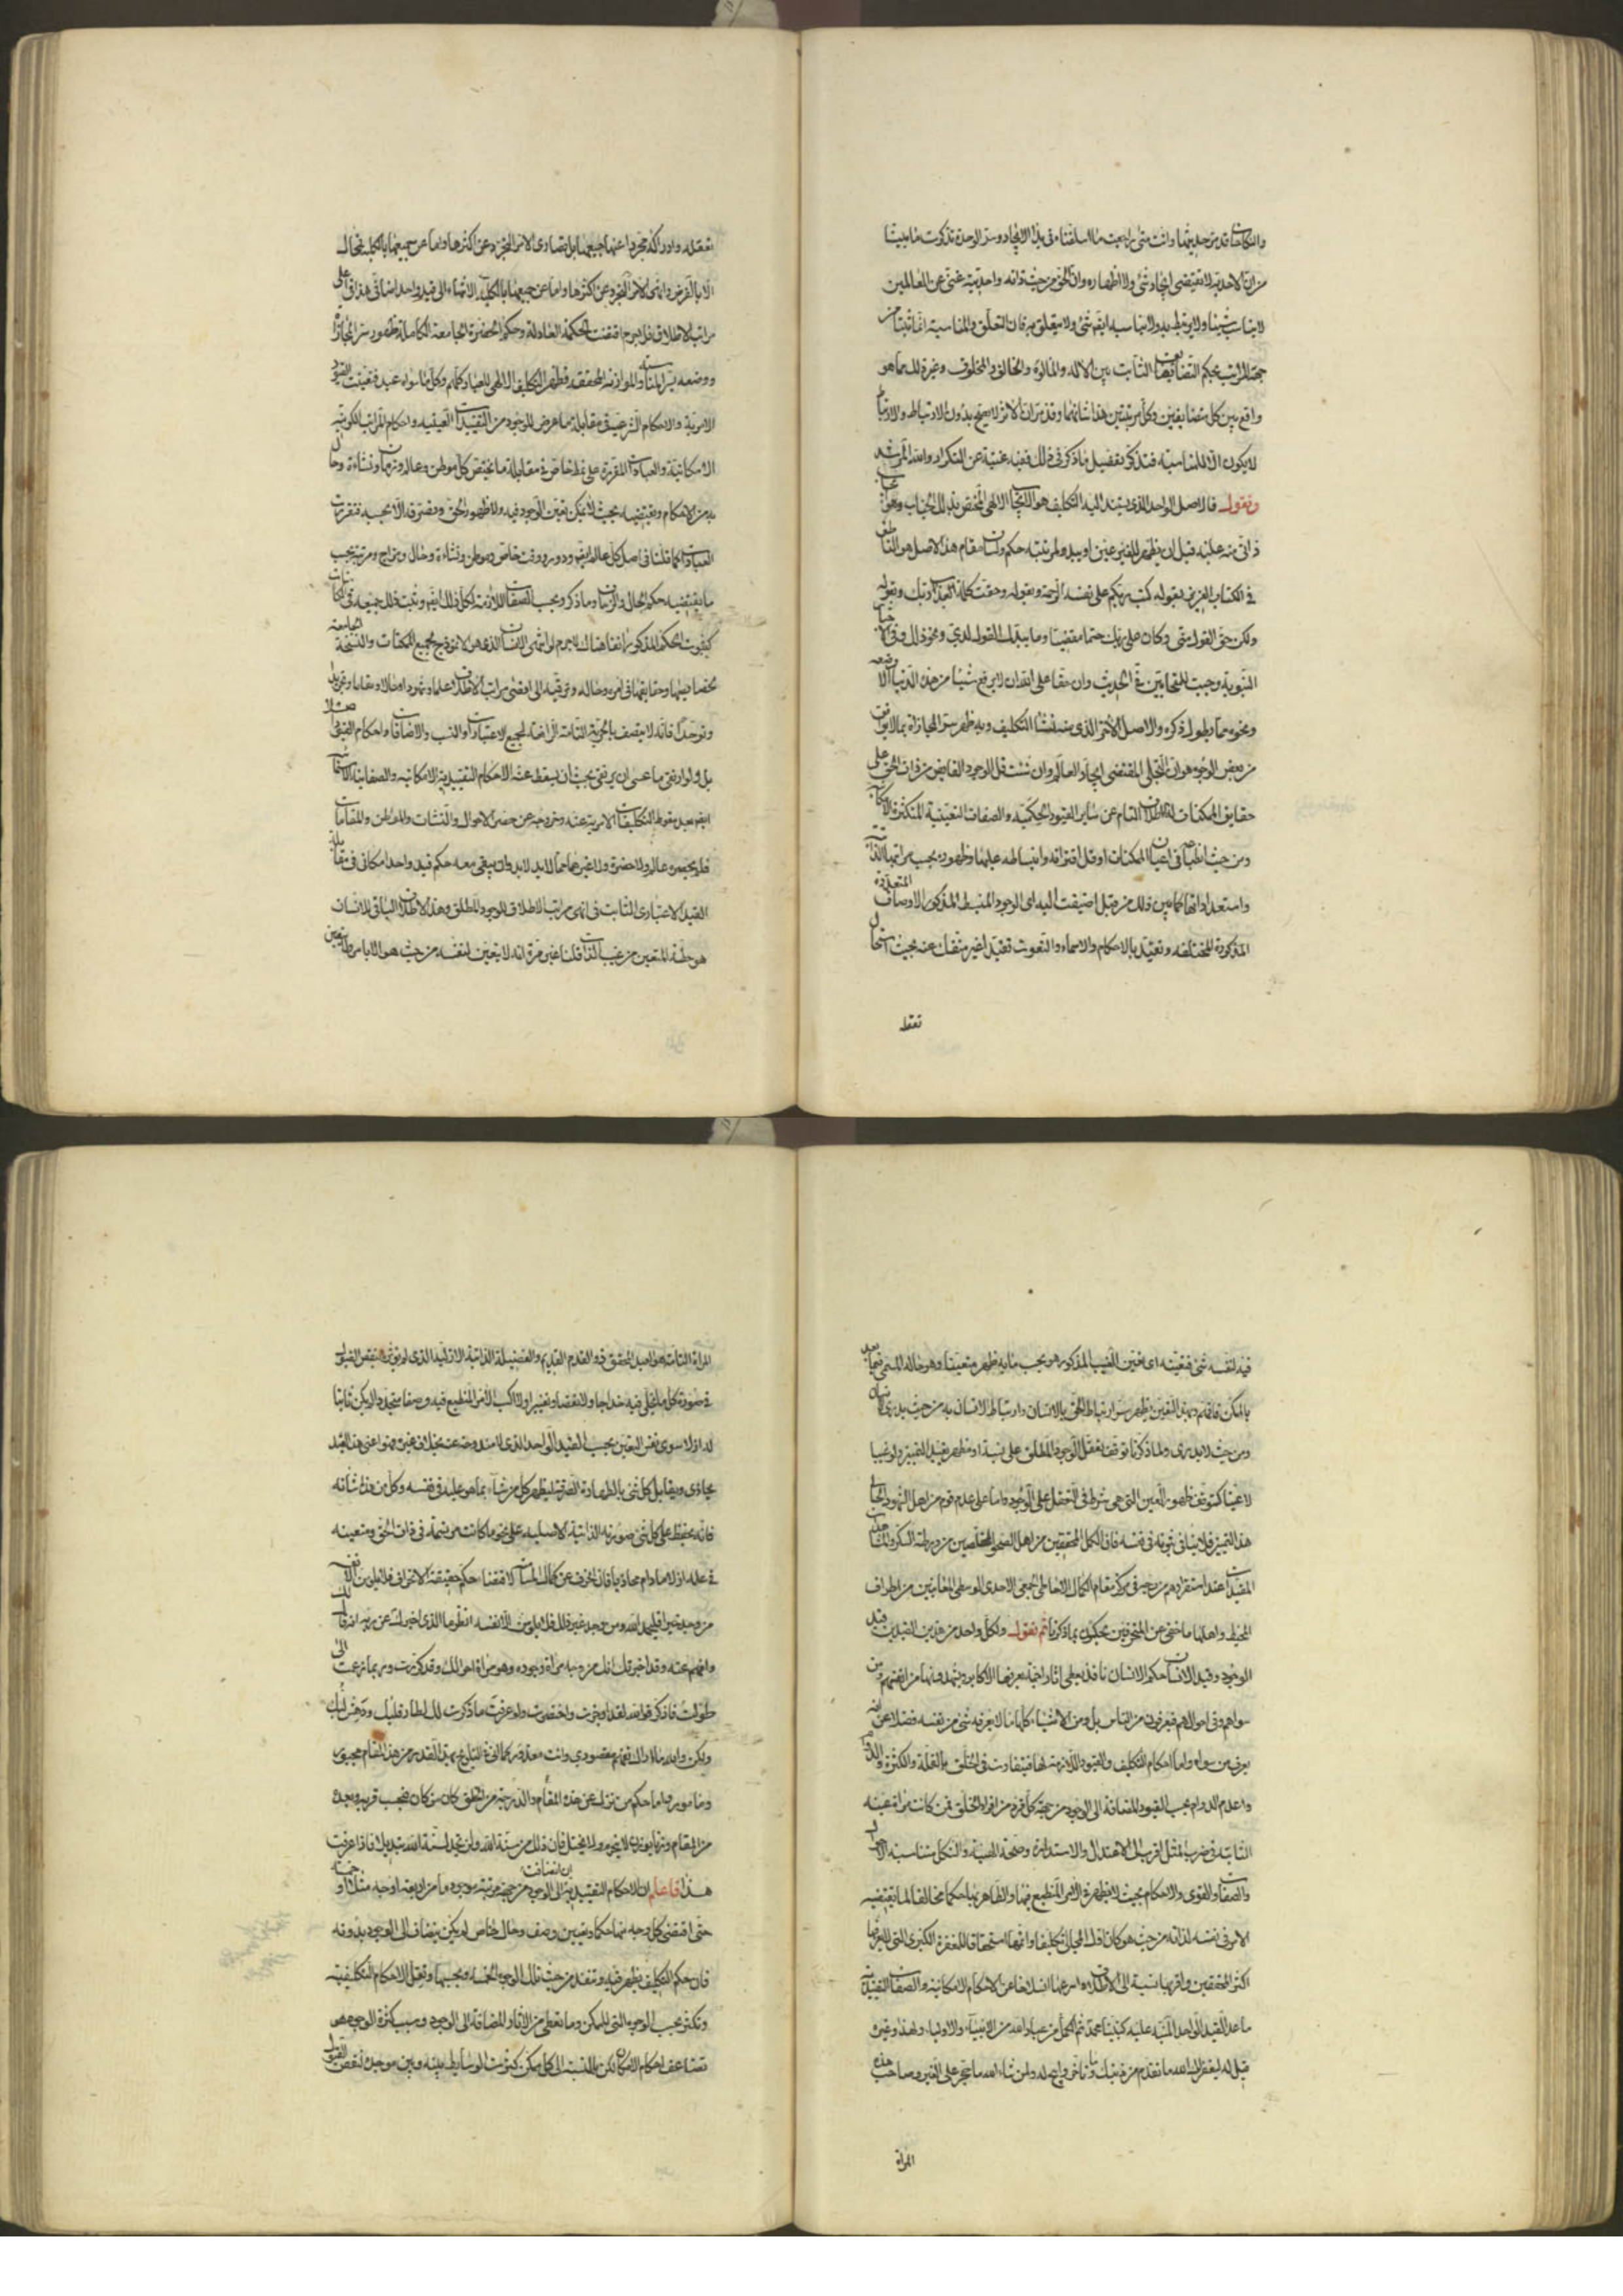 والكائنات قد مر حديثها وانت متى راجعت ما اسلفناه في بدء الايجاد وسر الوحدة تذكرت ما بينا
من ان الاحدية لا تقتضي ايجاد شيء ولا اظهاره وان الحق من حيث ذاته واحديته غني عن العالمين
لا يناسب شيئا ولا يرتبط به ولا يناسبه ايضا شيء ولا يتعلق به فان التعلق والمناسبة انما ثبتا من
جهة المراتب بحكم التضايف الثابت بين الاله والمالوه والخالق والمخلوق وغير ذلك مما هو
واقع بين كل متضايفين وكل مرتبتين هذا شانهما وقد مر ان الاثر لا يصح بدون الارتباط والارتباط
لا يكون الا لمناسبة فتذكر تفصيل ما ذكر في ذلك ففيه غنية عن التكرار والله المرشد
ونقول فالاصل الواحد الذي يستند اليه التكليف هو الايجاب الالهي المختص بذلك الجناب وهو ايجاب
ذاتي منه عليه قبل ان يظهر للغير عين او يبدو لمرتبته حكم ولسان مقام هذا الاصل هو الناطق
في الكتاب العزيز بقوله كتب ربكم على نفسه الرحمة وبقوله وحقت كلمة العذاب وبقوله
ولكن حق القول مني وكان على ربك حتما مقضيا وما يبدل القول لدي ونحو ذلك وفي الاخبار
النبوية وجبت للمتحابين في الحديث وان حقا على الله ان لا يرفع شيئا من هذه الدنيا الا وضعه
ونحوه مما يطول ذكره والاصل الآخر الذي منه نشأ التكليف وبه ظهر سر المجازاة بما لا يوافق
من بعض الوجوه هو ان التجلي المقتضي ايجاد العالم وان شئت قل الوجود الفائض من ذات الحق على
حقايق الممكنات له الاطلاق التام عن ساير القيود الحكمية والصفات التعينية المتكثرة الامكانية
ومن حيث انطباعه في اعيان الممكنات او قل اقترانه وانبساطه عليها وظهوره بحسب مراتبها الذاتية
واستعداداتها كما بين ذلك من قبل اضيفت اليه اي الوجود المنبسط المذكور الاوصاف المتعددة
المذكورة المختلفة وتقيد بالاحكام والاسماء والنعوت تقيدا غير منفك عنه بحيث استحال
تعقل
تعقله وادراكه مجردا عنها جميعها بل قصارى الامر التجرد عن اكثرها واما عن جميعها بالكلية فمحال
الا بالفرض وانهى الامر التجرد عن اكثرها واما عن جميعها بالكلية الانتهاء الى قيد واحد اضافي هذا في اعلى
مراتب الاطلاق فلا جرم اقتضت الحكمة العادلة وحكم الحضرة الجامعة الكاملة ظهور سر المجازاة
ووضعه بسر المناسبة والموازنة المحققة فظهر التكليف الالهي للعباد كلهم وكل ما سواه عبد فتعينت القيود
الامرية والاحكام الشرعية في مقابلة ما عرض للوجود من التقييدات العينية واحكام المراتب الكونية
الامكانية والعبادات المقررة على نمط خاص في مقابلة ما يختص كل موطن وعالم وزمان ونشاة وحال
به من الاحكام ويقتضيه بحيث لا يمكن تعين الوجود فيه ولا ظهور الحق وتصرفه الا بحسبه فتقررت
العبادات كما قلنا في اصل كل عالم ايضا ودور ووقت خاص وموطن ونشاة وحال ومزاج ومرتبة بحسب
ما يقتضيه حكم الحال والزمان وما ذكر وبحسب الصفات اللازمة لكل ذلك ايضا ويثبت ذلك جميعه في الكائنات
كثبوت الحكم المذكور انفا هناك لا جرم لو انتهى الانسان الذي هو الانموذج لجميع الممكنات والنسخة الجامعة
لخصائصها وحقايقها في امره وحاله وترقيه الى اقصى مراتب الاطلاق علما وشهودا وحالا ومقاما وتجريدا
وتوحيدا فانه لا يتصف بالحرية التامة الرافعة لجميع الاعتبارات والنسب والاضافات واحكام القيود اصلا
بل ولو ارتقى ما عسى ان يرتقي بحيث ان يسقط عنه الاحكام التقييدية الامكانية والصفاتية الاسمائية
ايضا بعد سقوط التكليفات الامرية عنه وخروجه عن حصر الاحوال والنشات والمواطن والمقامات
فلم يحصره عالم ولا حضرة ولا غيرهما مما لا بد لا بد وان يبقى معه حكم قيد واحد امكاني في مقابلة
القيد الاعتباري الثابت في انهى مراتب الاطلاق للوجود المطلق وهذا الاطلاق الباقي للانسان
هو حظه المتعين من غيب الذات قلنا غير مرة انه لا يتعين لنفسه من حيث هو الا بامر ولا يتعين
فيه لنفسه شيء فتعينه اي تعين الغيب المذكور هو بحسب ما به ظهر متعينا وهو حاله المسمى فيما بعد
بالممكن فافهم وبهذا التعين يظهر سر ارتباط الحق بالانسان وارتباط الانسان به من حيث يدري الانسان
ومن حيث لا يدري ولما ذكرنا توقف تعقل الوجود المطلق على نسبة او مظهر يفيد التميز ولو نسبيا
لا عينيا كتوقف ظهور العين التي هي شرط في التعقل على الوجود واما على عدم قوم من اهل الشهود الحالي
هذا التميز فلا ينافي ثبوته في نفسه فان الكمل المحققين من اهل الصحو المتخلصين من ورطة السكر وتلك
المقيدات عند استقرارهم في مركز مقام الكمال الاحاطي الجمعي الاحدي الوسطي المعاينين من اطراف
المحيط واهلها ما خفي عن المنحرفين يحكمون بما ذكرنا ثم نقول ولكل واحد من هذين القيدين قيد
الوجود وقيد الانسان حكم الانسان نافذ يعطي اثارا خفية يعرفها الاكابر ويشهدونها من انفسهم ومن
سواهم وفي احوالهم فيعرفون من الناس بل ومن الاشياء كلها ما لا يعرفه شيء من نفسه فضلا عن انه
يعرف من سواه واما احكام التكليف والقيود اللازمة لها فيتفاوت في الخلق بالقلة والكثرة والدوام
وعدم الدوام بحسب القيود المضافة الى الوجود من جهة كل فرد من افراد الخلق فمن كانت مراة عينه
الثابتة في ضرب المثل اقرب الى الاعتدال والاستدارة وصحة الهيئة والشكل متناسبة الاحوال
والصفات والقوى والاحكام بحيث لا يظهر في الامر المنطبع فيها والظاهر بها حكما مخالفا لما يقتضيه
الامر في نفسه لذاته من حيث هو كان اقل المجالي تكليفا واتمها استحقاقا للمغفرة الكبرى التي لا يعرفها
اكثر المحققين واقربها نسبة الى الاطلاق واسرعها انسلاخا عن الاحكام الامكانية والصفات التقييدية
ما عدا القيد الواحد المنبه عليه كنبينا محمد ثم الكمل من عباد الله من الانبياء والاولياء ولهذا وغيره
قيل له ليغفر لك الله ما تقدم من ذنبك وما تاخر وابيح له ولمن شاء الله ما يحجر على الغير وصاحب هذه
المراة
المراة التامة هو العبد المحقق ذو القدم القديم والفضيلة الذاتية الازلية الذي لم يؤثر بنقص القبول
في صورة كل ما تجلى فيه خداجا ولا نقصا وتغييرا ولا اكسب الامر المنطبع فيه وصفا متجددا لم يكن ثابتا
له ازلا سوى نفس التعين بحسب القيد الواحد الذي لا مندوحة عنه بخلاف غيره وهو اعني هذا العبد
يحاذي ويقابل كل شيء بالطهارة الصرفة ليظهر كل من شاء بما هو عليه في نفسه وكل من هذا شانه
فانه يحفظ على كل شيء صورته الذاتية الاصلية على نحو ما كانت مرتسمة في ذات الحق ومتعينة
في علمه ازلا ما دام محاذيا فان انحرف عن كمال المسامتة لاقتضاء حكم حقيقته الانحراف فلا يلومن الا نفسه
من وجد خيرا فليحمد الله ومن وجد غير ذلك فلا يلومن الا نفسه انظر ما الذي اخبرك عن ربه انه قال
وافهم عنه وقد اخبر قبل انك من وجه مراة وجوده وهو مراة احوالك وقد كررت وربما زعمت اني
طولت فاذكر فوالله لقد اوجزت واختصرت ولو عرفت ما ذكرت لك لطار قلبك ودهش لبك
ولكن والله ما اراك تفهم مقصودي وانت معذور كما اني في التبليغ بهذا القدر من هذا المقام مجبور
ومامور واما حكم من نزل عن هذه المقام والدرجة من الخلق كان من كان فبحسب قربه وبعده
من المقام وتربا بوزن لا ينخرم ولا يختل فان ذلك من سنة الله ولن تجد لسنة الله تبديلا فاذا عرفت
هذا فاعلم ان الاحكام التقييدية ان انضافت الى الوجود من جهة مرتبة موجود ما من اربعة اوجه مثلا او خمسة
حتى اقتضى كل وجه منها حكما وتعين وصف وحال خاص لم يكن يضاف الى الوجود بدونه
فان حكم التكليف يظهر فيه وينفذ من حيث تلك الوجوه الخمسة وبحسبها وتقل الاحكام التكليفية
وتكثر بحسب الوجوه التي للممكن وما تعطي من الاثار المضافة الى الوجود وسبب كثرة الوجوه هو
تضاعف احكام الامكان لكن بالنسبة الى كل ممكن كثرت الوسايط بينه وبين موجده لنقص القبول